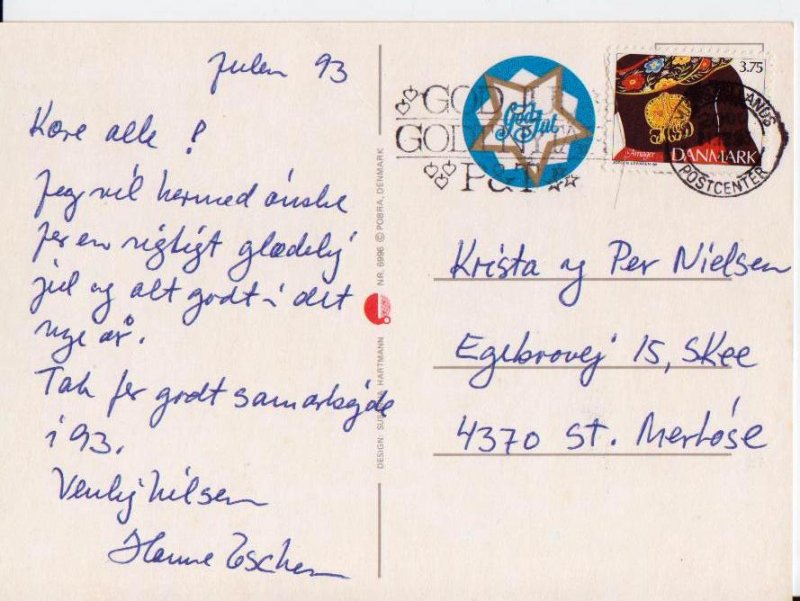 Julen 93
Kære alle!
Jeg vil hermed ønske
jer en rigtigt glædelig
jul og alt godt i det
nye år.
Tak for godt samarbejde
i 93.
Venlig hilsen
Hanne
NR. 6996 © POBRA, DENMARK
DESIGN: HARTMANN
GOD JUL
GODT NYTÅR
P&T
God Jul
3.75
Amager
DANMARK
POSTCENTER
Krista og Per Nielsen
Egebrovej 15, Skee
4370 St. Merløse